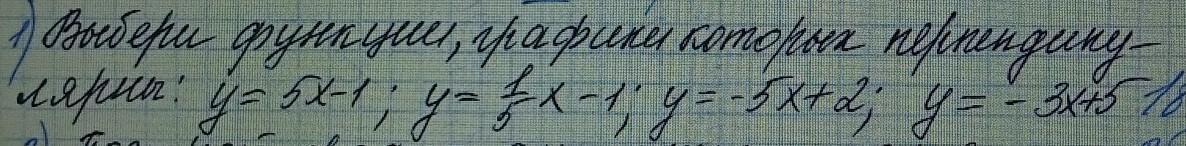 1) Выбери функции, графики которых перпендику-
лярны: y = 5x-1; y = 1/5 x - 1; y = -5x+2; y = -3x+5 1б